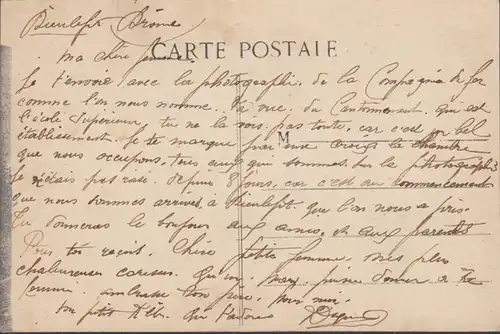 Dieulefit Drôme
CARTE POSTALE
ma chère femme.
Je t'envoie avec la photographie de la Compagnie de fer
comme l'on nous nomme. vue du Cantonnement, qui est
l'école Supérieure, tu ne la vois pas toute, car c'est un bel
établissement. Je te marque par une croix la chambre
M
que nous occupons, tous ceux qui sommes sur la photographie
Je n'étais pas rasé depuis 8 jours, car c'est au commencement
que nous sommes arrivés à Dieulefit, que l'on nous a pris.
Tu donneras le bonjour aux amis, et aux parents
Pour toi reçoit. Chère petite femme, mes plus
chaleureuses caresses. Qu'un mary puisse donner à
femme. ambrasse ton père, pour moi.
ton petit qui t'adore